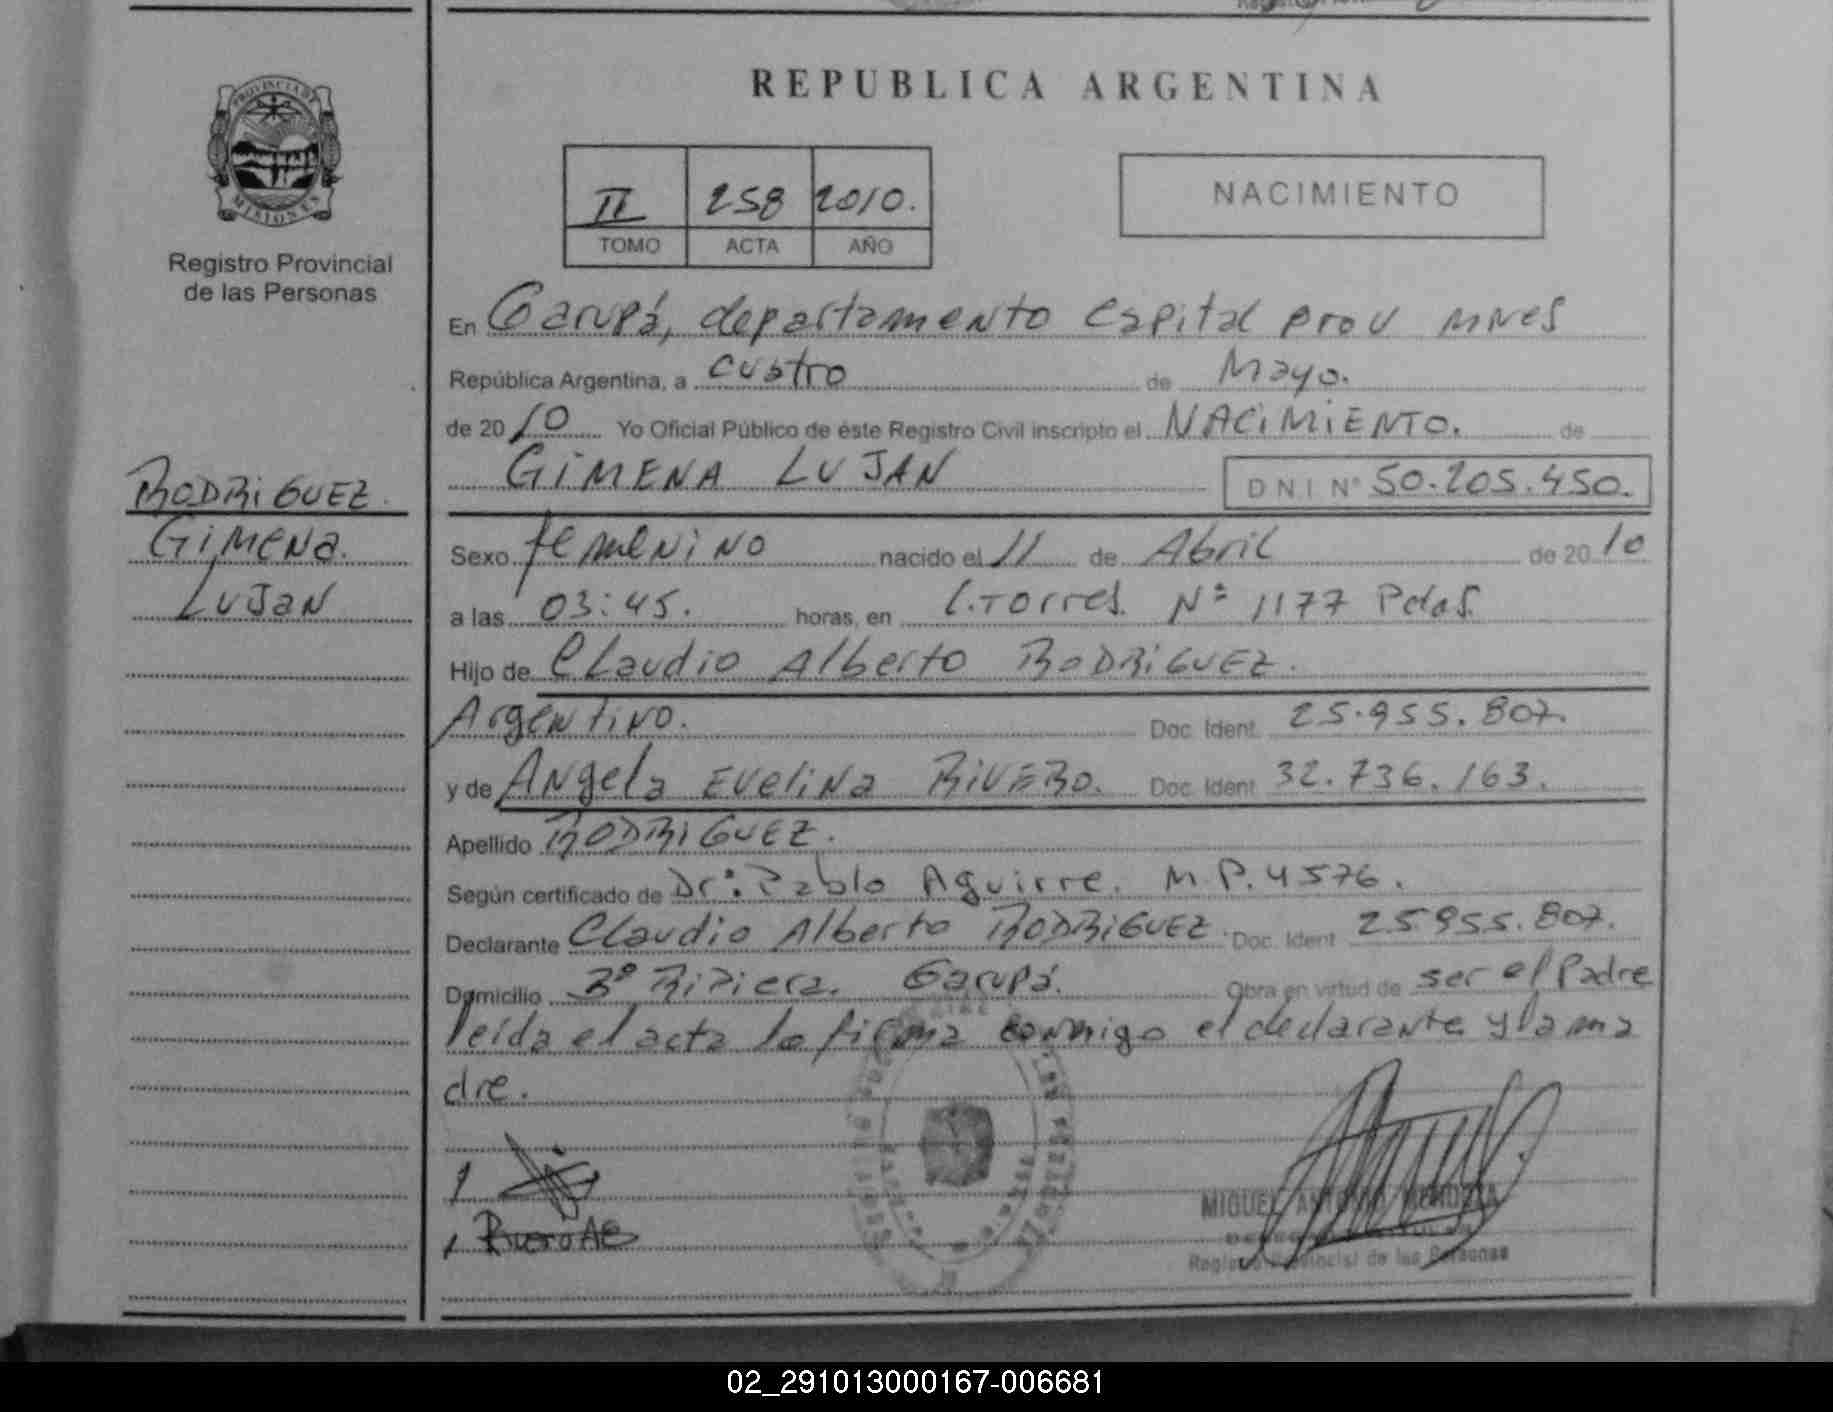 REPUBLICA ARGENTINA
PROVINCIA DE
MISIONES
Registro Provincial
de las Personas
II 258 2010.
TOMO ACTA AÑO
NACIMIENTO
En Garupá, departamento Capital prov Mnes
República Argentina, a cuatro de Mayo.
de 2010 Yo Oficial Público de éste Registro Civil inscripto el NACIMIENTO. de
GIMENA LUJAN DNI Nº 50.205.450.
RODRIGUEZ.
GiMENa.
LuJaN
Sexo femenino nacido el 11 de Abril de 2010
a las 03:45. horas, en C.Torres. Nº 1177 Pdas.
Hijo de Claudio Alberto RODRIGUEZ.
Argentino. Doc. Ident. 25.955.807.
y de Angela Evelina RIVERO. Doc. Ident 32.736.163.
Apellido RODRIGUEZ.
Según certificado de Dr: Pablo Aguirre. M.P.4576.
Declarante Claudio Alberto RODRIGUEZ. Doc. Ident 25.955.807.
Domicilio Bº Ripiera. Garupá. Obra en virtud de ser el Padre
leída el acta la firma conmigo el declarante y la ma
dre.
MIGUEL ANTONIO MENDOZA
Registro Provincial de las Personas
02_291013000167-006681